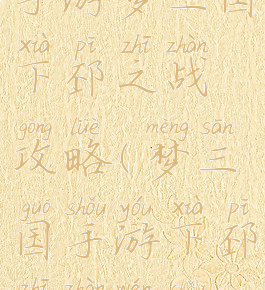 手游梦三国
xià pī zhī zhàn
下邳之战
gōng lüè mèng sān
攻略(梦三
guó shǒu yóu (xià pī
国手游下邳
zhī zhàn